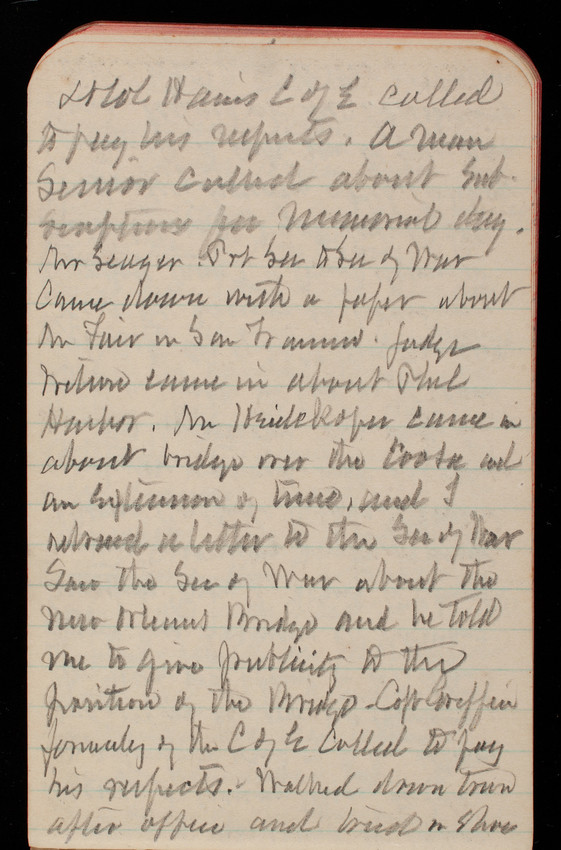 Lt Col Hains C of E called
to pay his respects. A man
Senior called about Sub-
scriptions for Memorial day.
Mr Seager Prt Sec to Sec of War
Came down with a paper about
Mr Fair in San Francisco. Judge
came in about Phil
Harbor. Mr Heidekoper came in
about bridge over the and
an Extension of time, and I
a letter to the Sec of War
Saw the Sec of War about the
New Orleans Bridge and he told
me to give publicity to the
position of the Bridge. Capt Griffin
formerly of the C of E Called to pay
his respects. Walked down town
after office and tried on Shoes